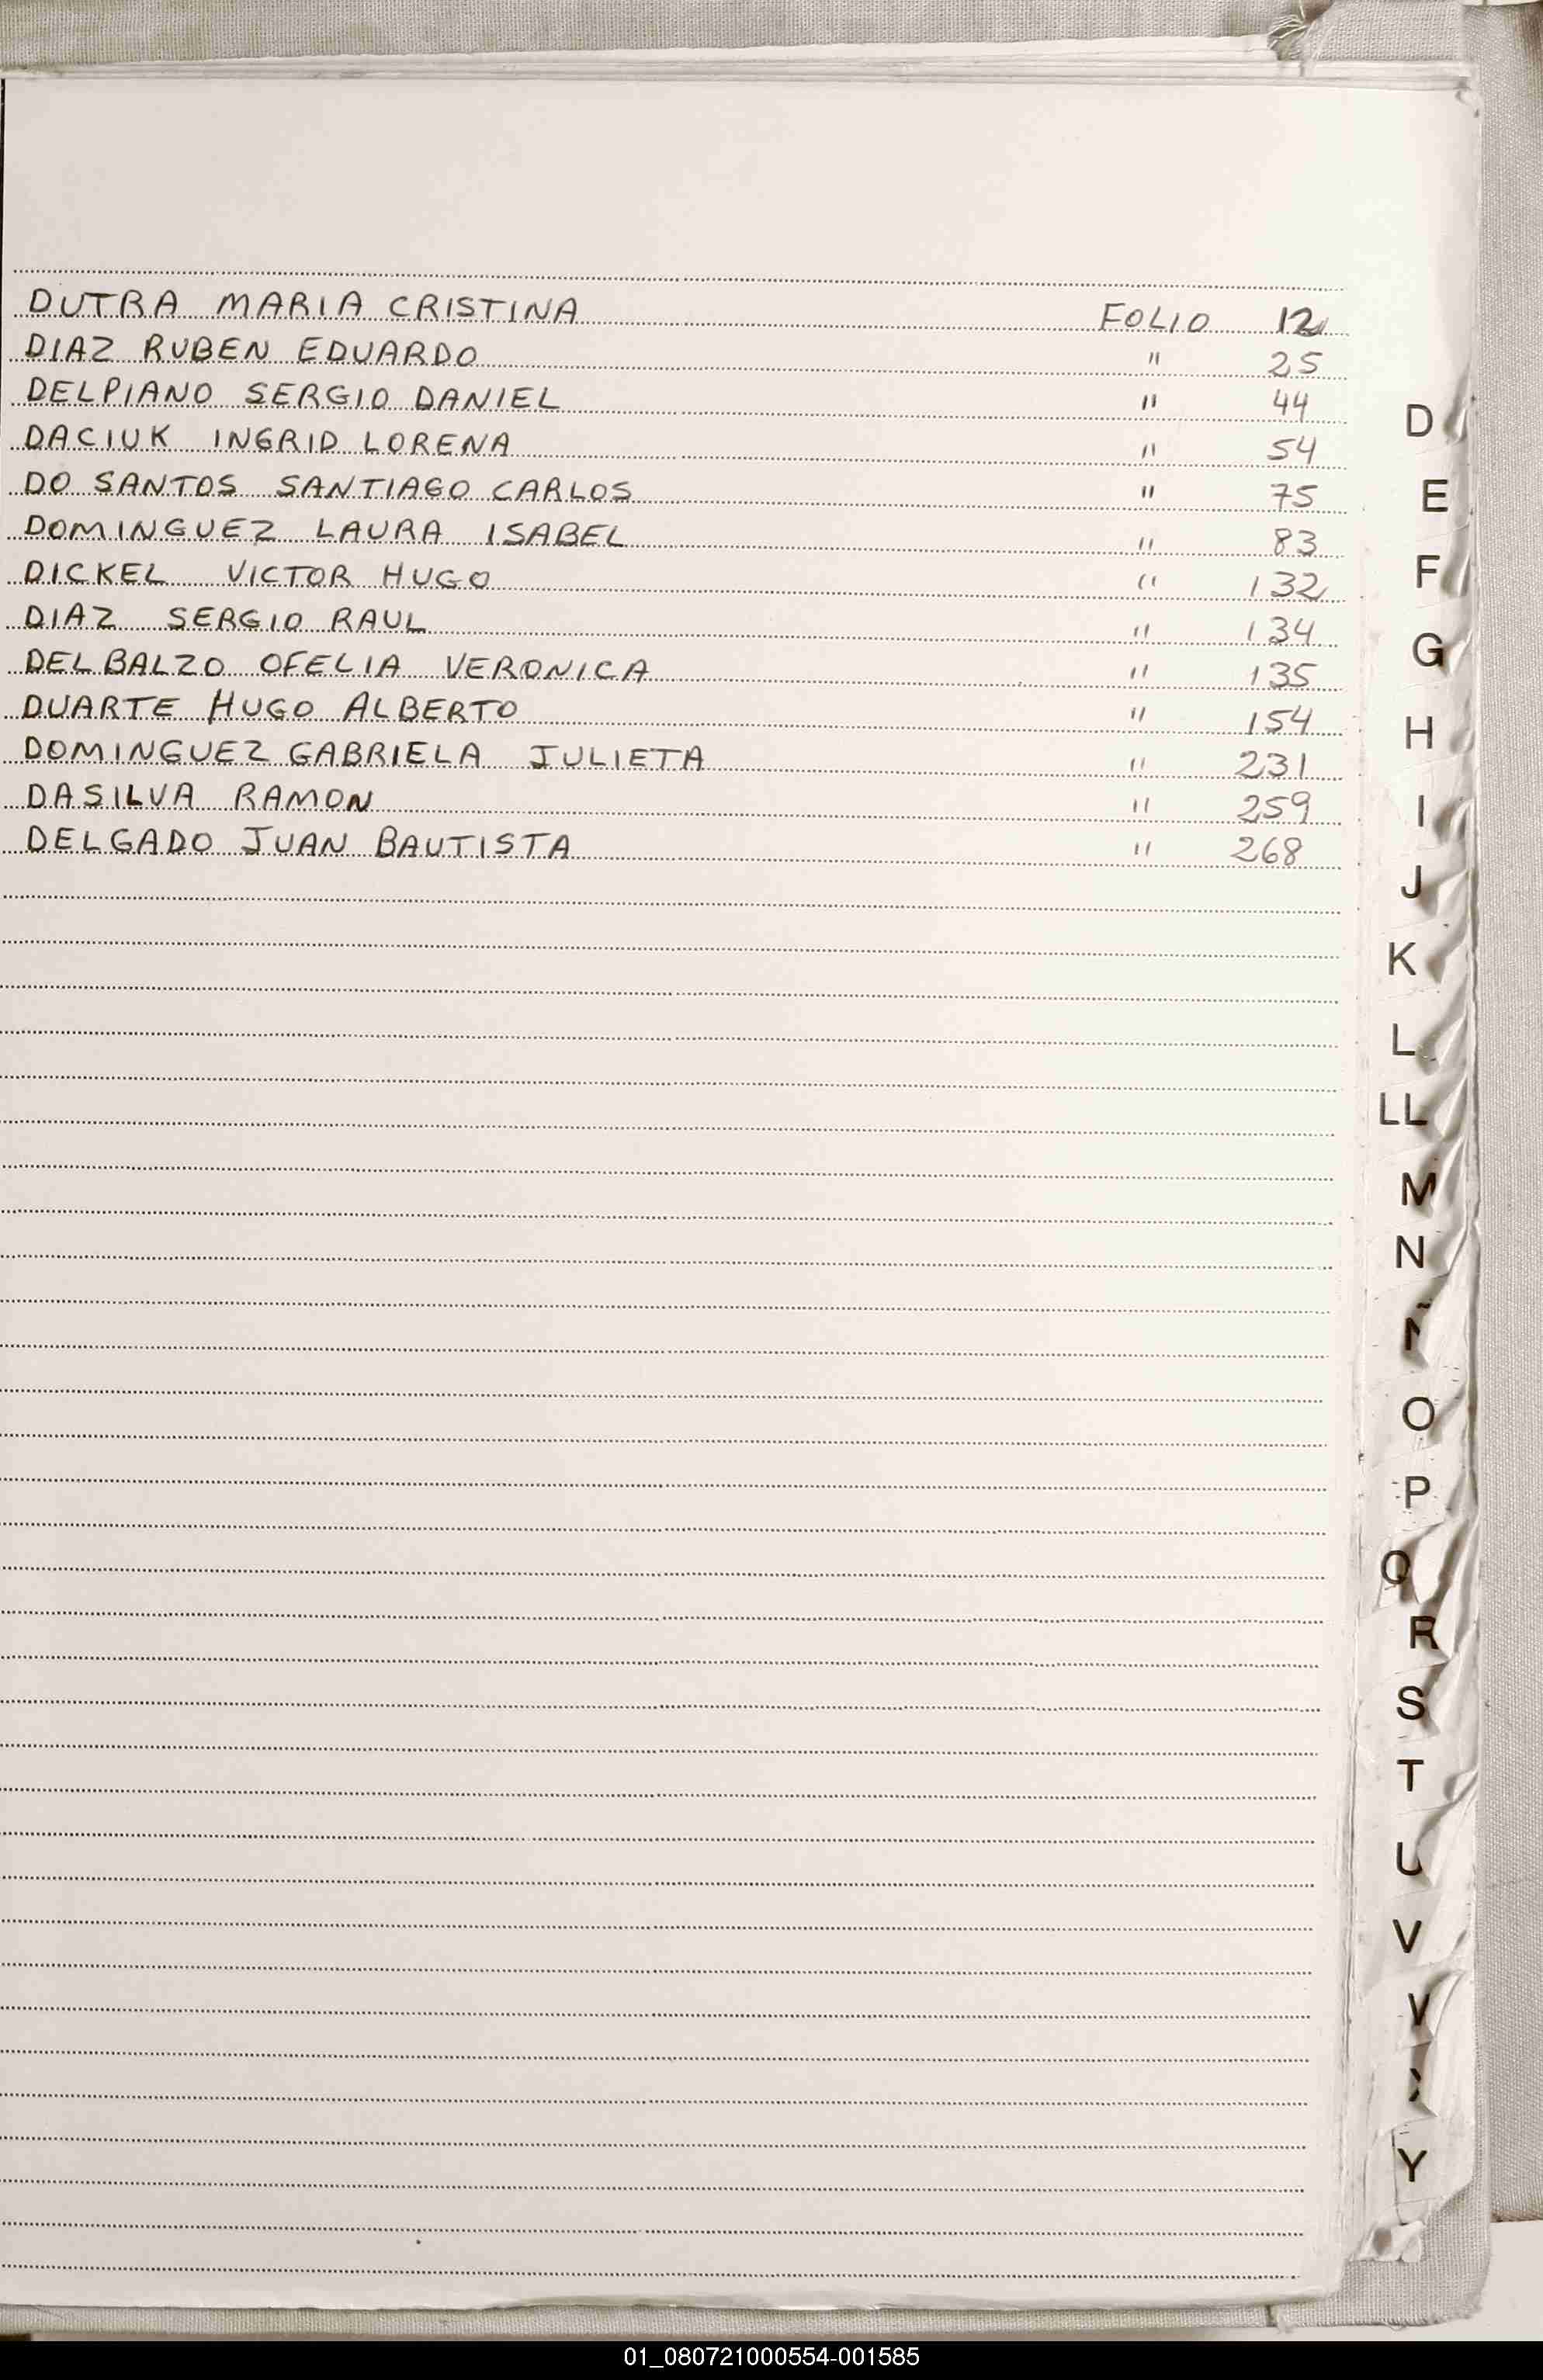 DUTRA MARIA CRISTINA FOLIO 12
DIAZ RUBEN EDUARDO " 25
DELPIANO SERGIO DANIEL " 44
DACIUK INGRID LORENA " 54
DO SANTOS SANTIAGO CARLOS " 75
DOMINGUEZ LAURA ISABEL " 83
DICKEL VICTOR HUGO " 132
DIAZ SERGIO RAUL " 134
DELBALZO OFELIA VERONICA " 135
DUARTE HUGO ALBERTO " 154
DOMINGUEZ GABRIELA JULIETA " 231
DASILVA RAMON " 259
DELGADO JUAN BAUTISTA " 268
D
E
F
G
H
I
J
K
L
LL
M
N
Ñ
O
P
Q
R
S
T
U
V
Y
01_080721000554-001585